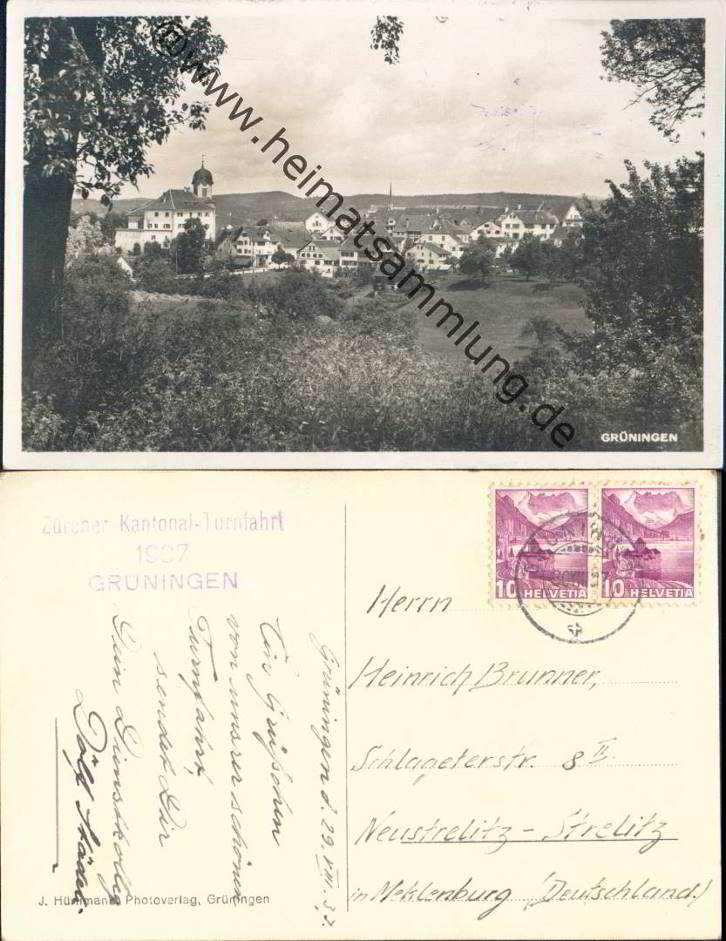 © www.heimatsammlung.de
GRÜNINGEN
Zürcher Kantonal-Turnfahrt
1937
GRÜNINGEN
Grüningen d. 29. VIII. 37.
Ein Grüßchen
von unsrer schönen
Turnfahrt,
sendet Dir
Dein Dienstkolg
Dölf
10 HELVETIA
10 HELVETIA
Herrn
Heinrich Brunner,
Schlageterstr. 8 II.
Neustrelitz - Strelitz
in Meklenburg (Deutschland.)
J. Hürlimann, Photoverlag, Grüningen